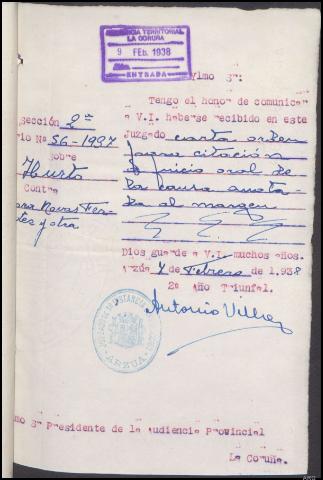 AUDIENCIA TERRITORIAL
LA CORUÑA
9 FEB. 1938
ENTRADA
Ylmo Sr:
Tengo el honor de comunicar
a V.I. haberse recibido en este
Juzgado carta orden
para citación
a juicio oral de
la causa anota-
da al margen
Sección 2ª
rio Nº 56-1937
sobre
Hurto
Contra
Navas Fer-
y otra
Dios guarde a V.I. muchos años.
Arzúa 4 de Febrero de 1.938
2º Año Triunfal.
Antonio
ARZUA
mo Sr Presidente de la Audiencia Provincial
La Coruña.